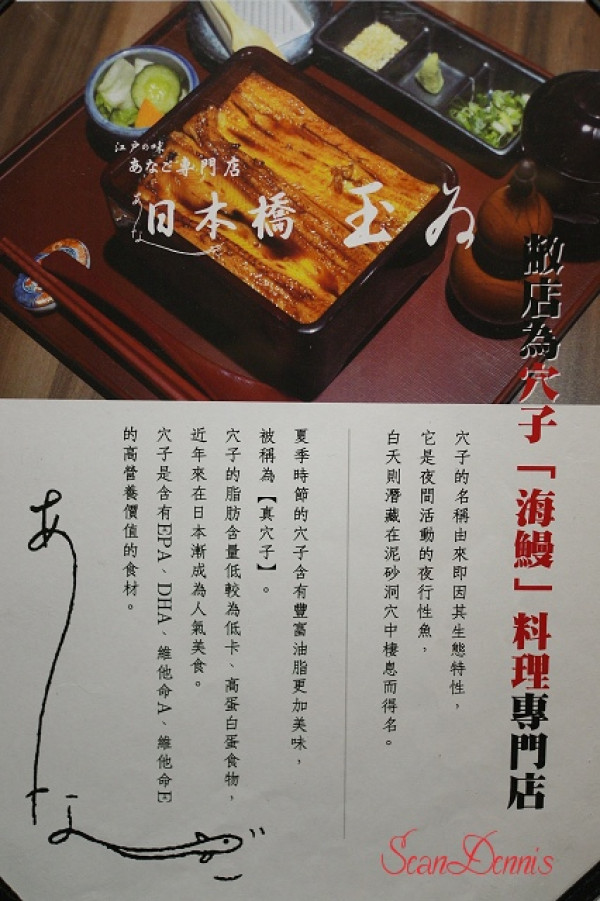 江戸の味
あなご専門店
あなご
日本橋 玉ゐ
敝店為穴子「海鰻」料理專門店
穴子的名稱由來即因其生態特性，
它是夜間活動的夜行性魚，
白天則潛藏在泥砂洞穴中棲息而得名。
夏季時節的穴子含有豐富油脂更加美味，
被稱為【真穴子】。
穴子的脂肪含量低較為低卡、高蛋白蛋食物，
近年來在日本漸成為人氣美食。
穴子是含有EPA、DHA、維他命A、維他命E
的高營養價值的食材。
あなご
SeanDennis